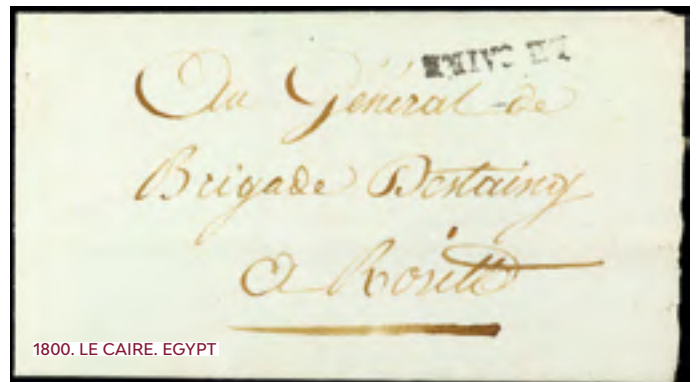 LE CAIRE
Au Général de
Brigade Destaing
a Rosette
1800. LE CAIRE. EGYPT